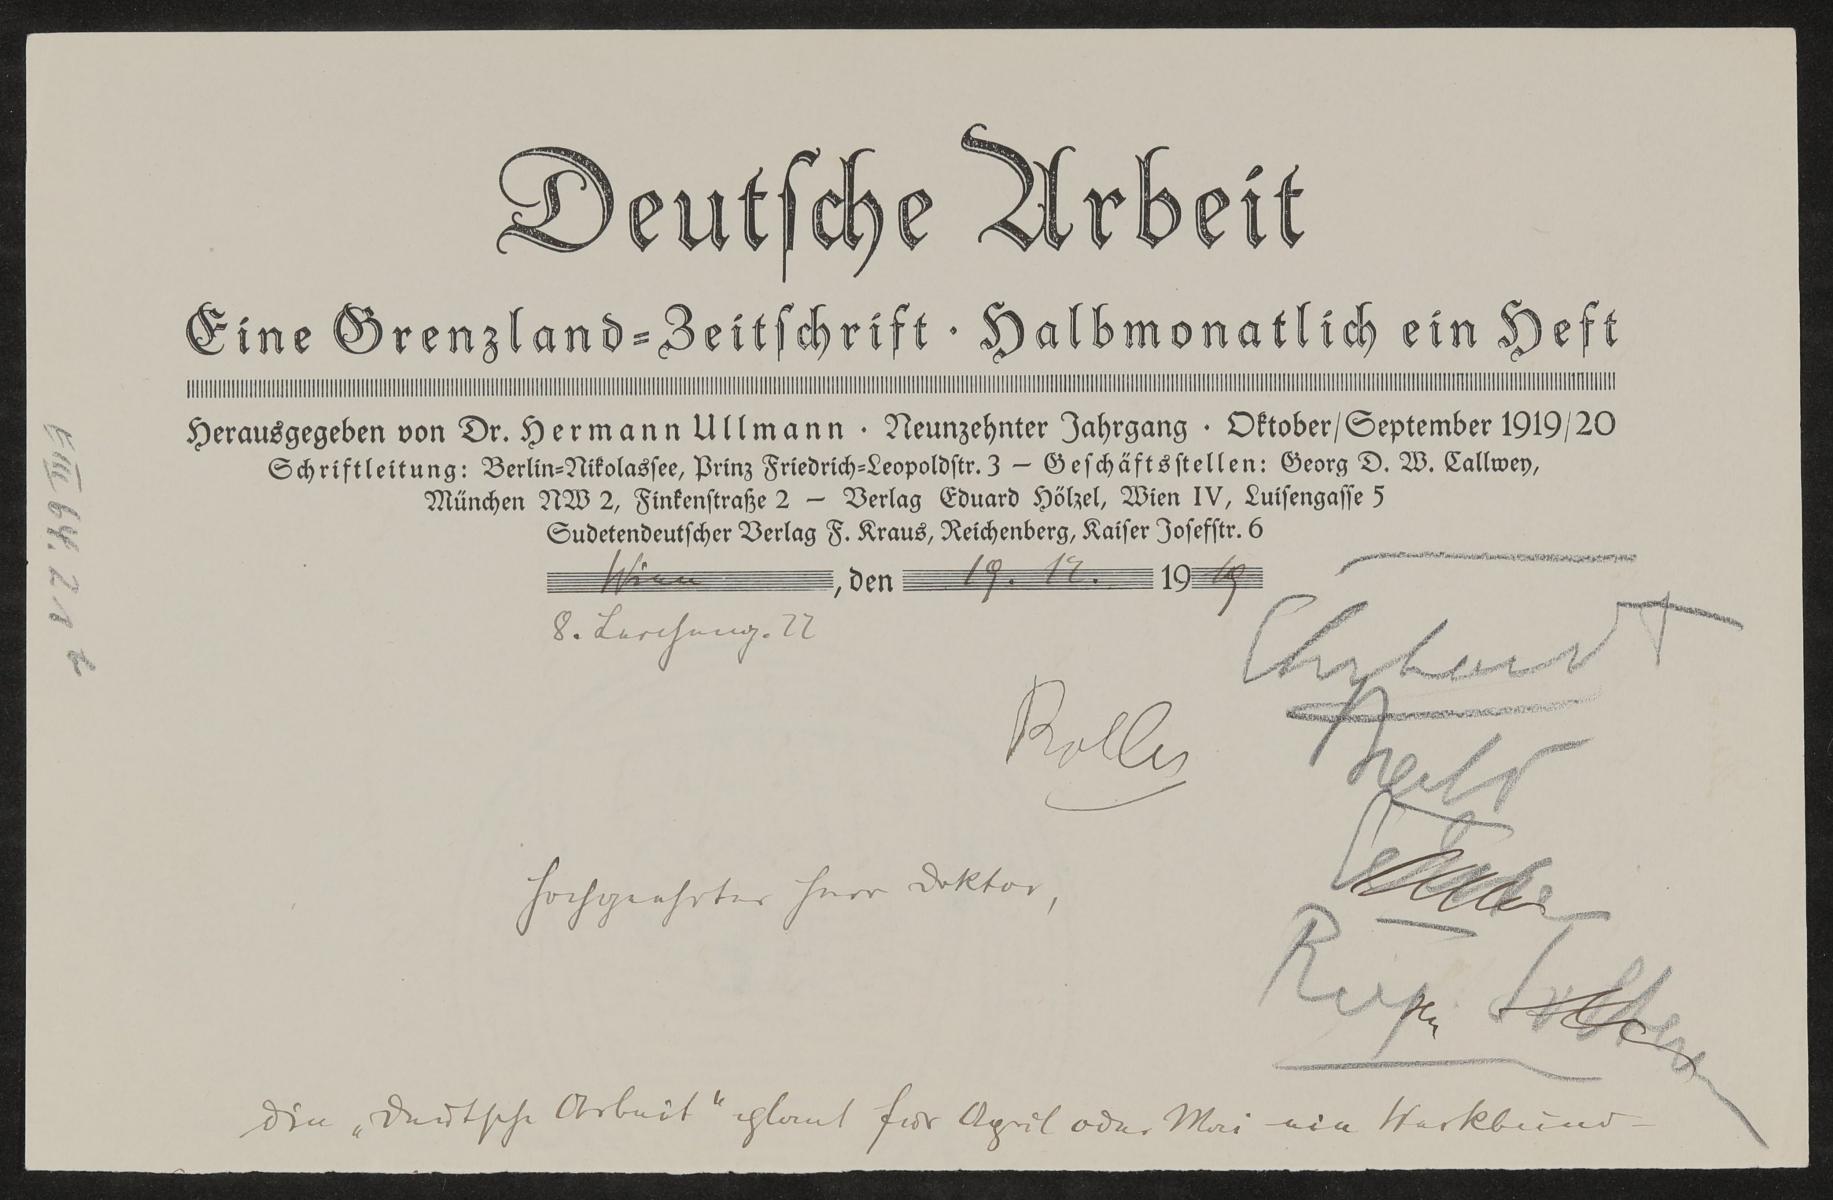 Deutsche Arbeit
Eine Grenzland=Zeitschrift · Halbmonatlich ein Heft
Herausgegeben von Dr. Hermann Ullmann · Neunzehnter Jahrgang · Oktober/September 1919/20
Schriftleitung: Berlin=Nikolassee, Prinz Friedrich=Leopoldstr. 3 — Geschäftsstellen: Georg D. W. Callwey,
München NW 2, Finkenstraße 2 — Verlag Eduard Hölzel, Wien IV, Luisengasse 5
Sudetendeutscher Verlag F. Kraus, Reichenberg, Kaiser Josefstr. 6
Wien, den 19. 12. 1919
8. Lercheng.
Roller
Hochgeehrter Herr Doktor,
die „Deutsche Arbeit" plant für April oder Mai ein Werkbund-